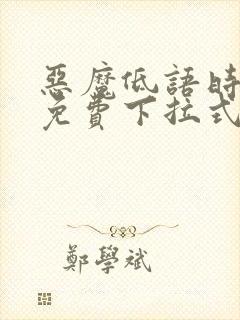 惡魔低語時
免費下拉式
鄭學斌